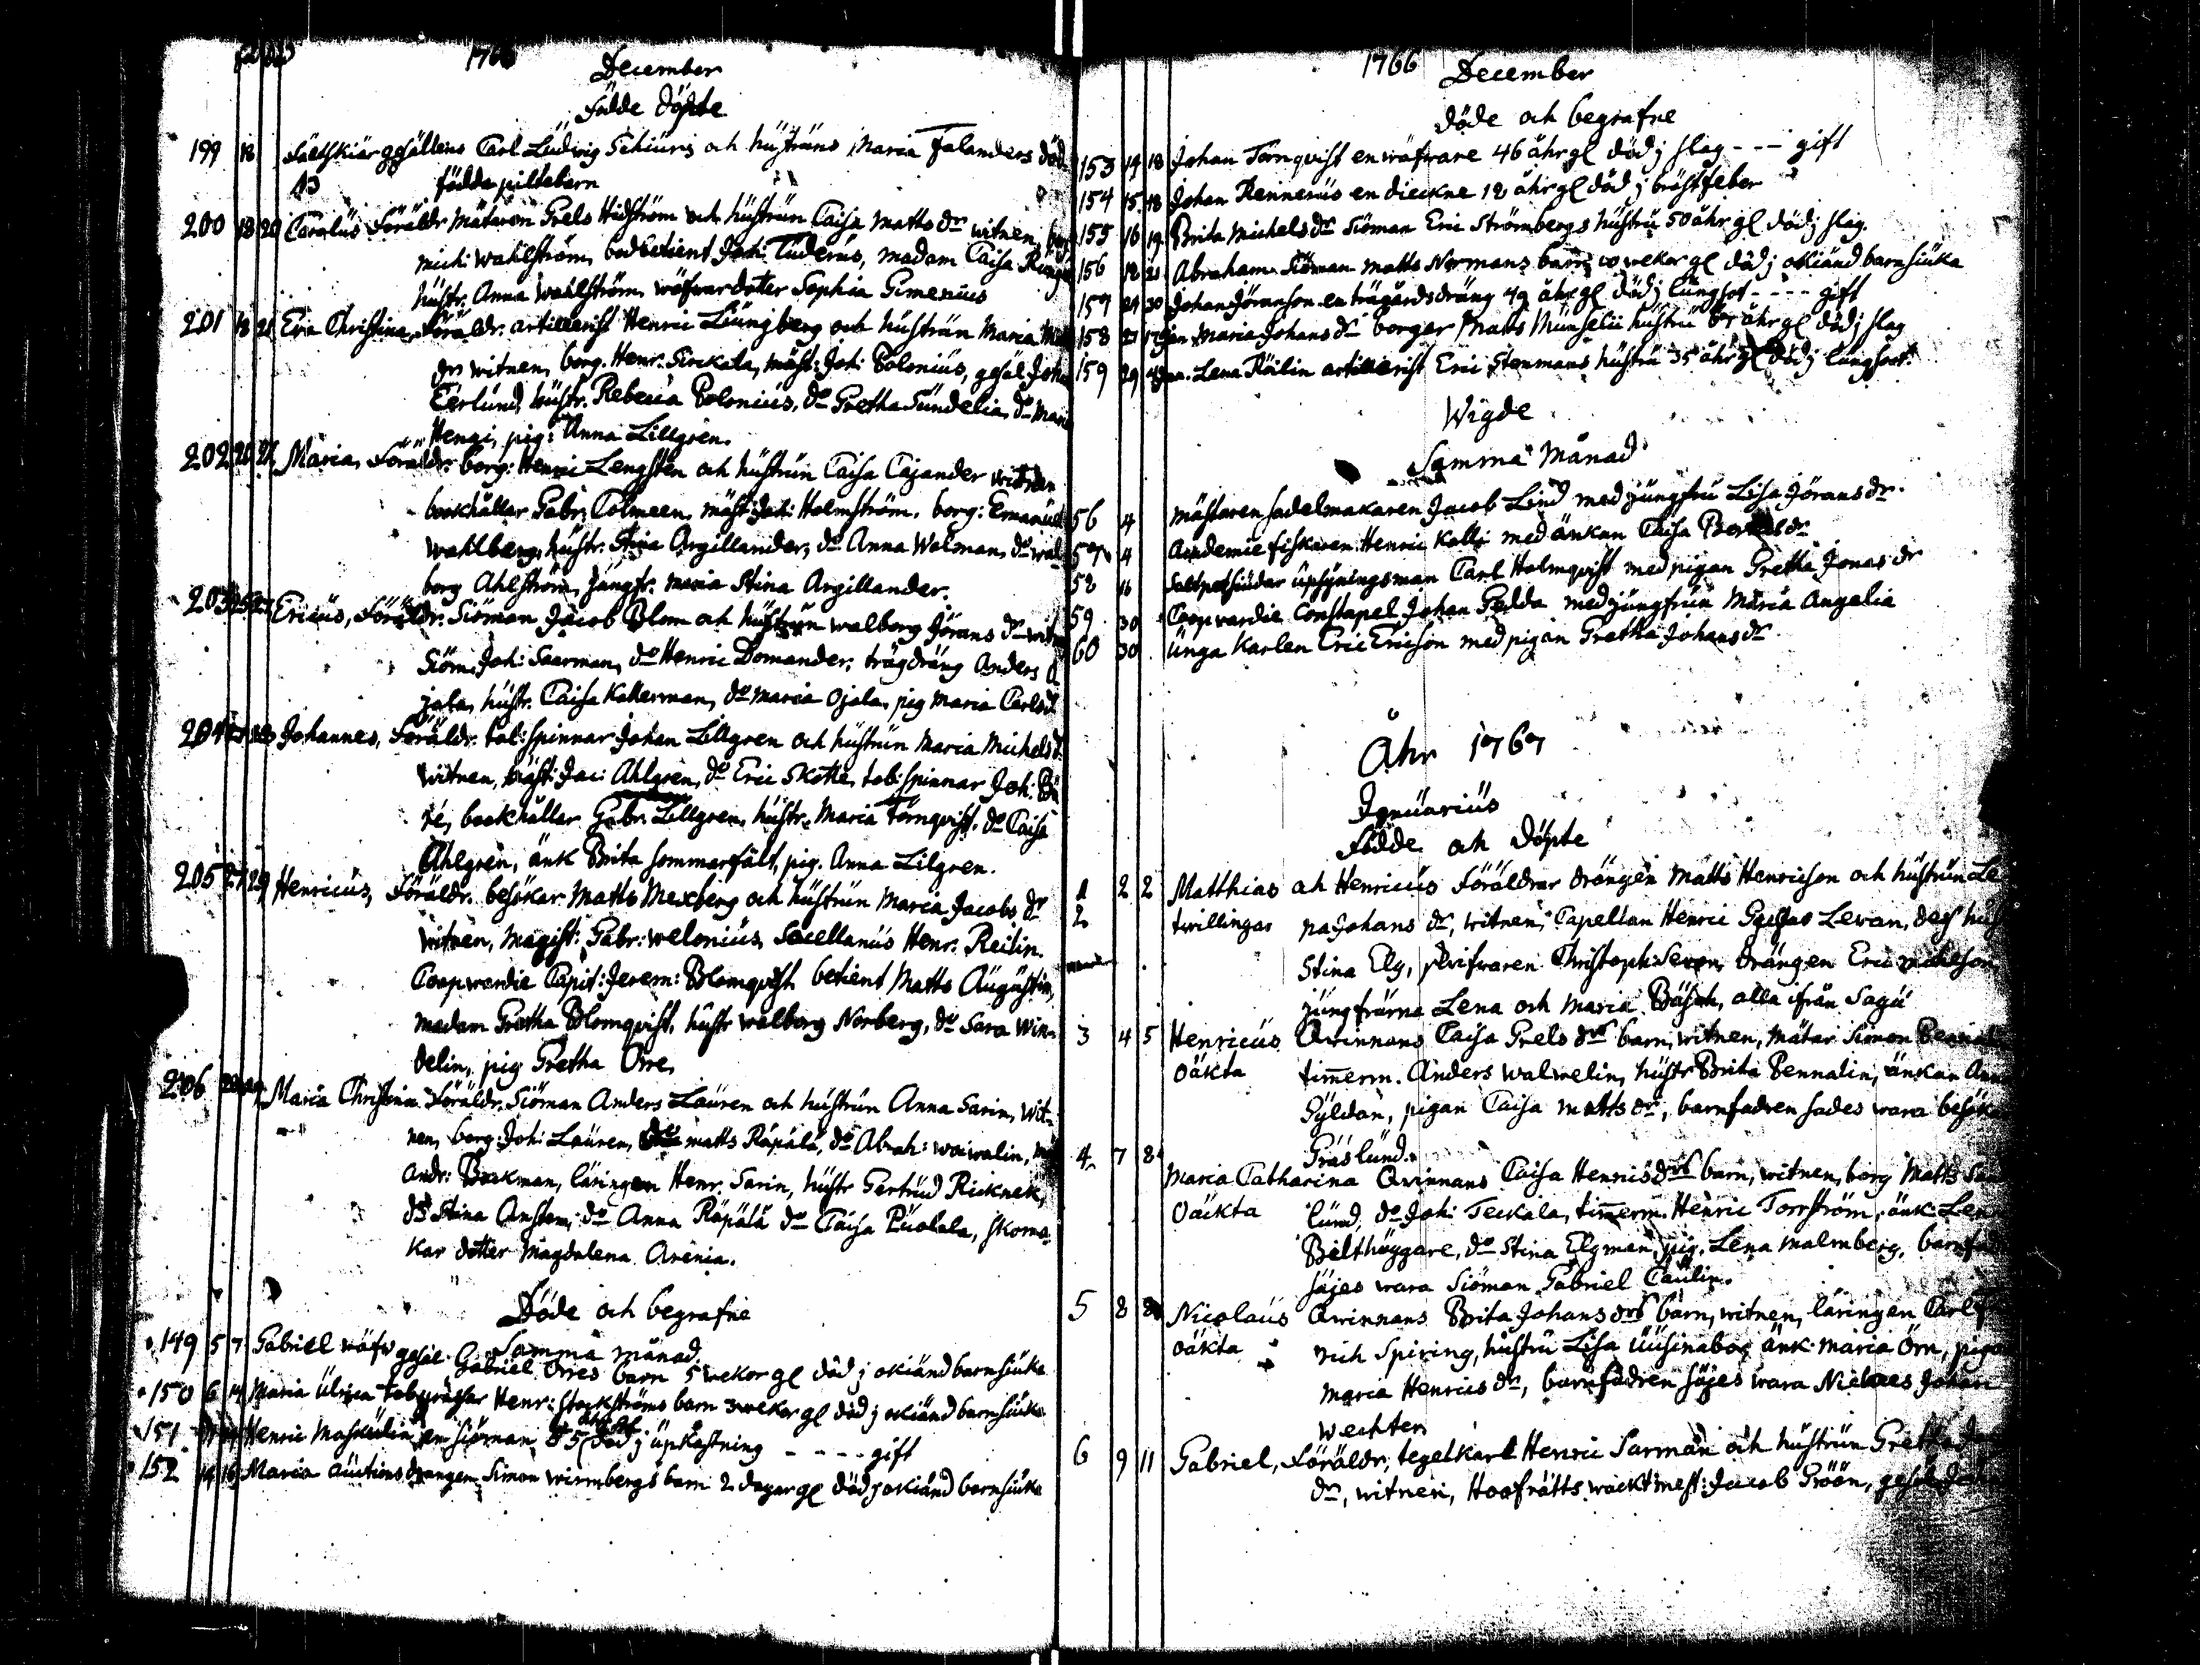 1766
December
Födde Döpte
199 18 Fältskiär gesällens Carl Ludwig Schiürs och hustruns Maria Falanders död
födda piltebarn
200 18 20 Carolus Föräldr mätaren Grels Hidström och hustrun Caisa Matts dr witnen,
Mich: Wahlström, bodbetient Joh: Tuderus, madam Caisa
hustr. Anna Wahlström, wäfwardoter Sophia Gimenius
201 18 21 Eva Christina, Föräldr. artillerist Henric Liungberg och hustrun Maria
drs witnen, borg. Henr. Sirckala, mäst: Joh: Polonius, gesäl Joha
Eerlund, hustr. Rebecca Polonius, do Gretha Sundelia, do Maria
Hengi, pig: Anna Lillgren.
202 20 21 Maria, Föräldr. borg: Henric Lengsten och hustrun Caisa Cajander witnen
bookhållar Gabr: Tolmeen, mäst: Joh: Holmström, borg: Emanuel
Wahlberg, hustr. Stina Argillander, do Anna Wolman, do wal
borg Ahlström, Jungfr. Maria Stina Argillander.
203 Ericus, Föräldr. Siöman Jacob Blom och hustrun Walborg Jörans dr witn
Siöm. Joh: Saarman, do Henric Domander, trägdräng Anders O
jala, hustr. Caisa Kallerman, do Maria Ojala, pig Maria Carlsd.
204 Johannes, Föräldr. tob: spinnar Johan Lillgren och hustrun Maria Michelsd.
witnen, mäst: Jac: Ahlgren, do Eric Skotte, tob: spinnar Joh:
ré, bookhållar Gabr. Lillgren, hustr. Maria Törnqvist, do Caisa
Ahlgren, änk Brita Sommarfält, pig. Anna Lilgren.
205 27 29 Henricus, Föräldr. besökar Matts Mexberg och hustrun Maria Jacobs dr
witnen, Magist: Gabr: Welonius, Sacellanus Henr. Reilin.
Coopvardie Capit: Jerem: Blomqvist betient Matts Augustin,
madam Gretha Blomqvist, hustr Walborg Norberg, do Sara Win-
delin, pig Gretha Orre.
206 Maria Christina Föräldr. Siöman Anders Lauren och hustrun Anna Sarin, wit-
nen, borg: Joh: Lauren, do Matts Räpälä, do Abrah: Waiwalin,
Andr: Bookman, läringen Henr. Sarin, hustr Gertrud Ricknek,
do Stina Ansten, do Anna Räpälä do Caisa Puolala, skoma-
kar dotter Magdalena Arenia.
Döde och begrafne
Samma månad.
149 5 7 Gabriel wäfv gesäl. Gabriel Orres barn 5 wekor gl död j okiänd barnsiuka
150 6 14 Maria Ulrica tobspinnar Henr: Stockströms barn 3 wekor gl död j okiänd barnsiuka
151 Henric Maskulin en siöman 55 åhr gl. död j upkastning - - - - gift
152 14 16 Maria auctionsdrängen Simon Wirmbergs barn 2 dagar gl död j okiänd barnsiuka
1766 December
Döde och begrafne
153 14 18 Johan Törnqvist en wäfware 46 åhr gl död j slag - - - gift
154 15 18 Johan Rennerus en dieckne 12 åhr gl död j bröstfeber
155 16 19 Brita Michels dr Siöman Eric Strömbergs hustru 50 åhr gl död j slag.
156 18 21 Abraham Siöman Matts Normans barn 10 wekor gl död j okiänd barnsiuka
157 24 30 Johan Jöranson en trägårdsdräng 49 åhr gl död j lungsot - - - - gift
158 27 Jan Maria Johans dr borgar Matts Munselii hustru åhr gl död j slag
159 29 Jan. Lena Röilin artillerist Eric Stenmans hustru 35 åhr gl död j lungsot.
Wigde
Samma Månad
56 4 Mästaren sadelmakaren Jacob Lind med jungfru Lisa Jörans dr.
57 4 Academie fiskaren Henric Kalli med änkan Caisa dr
58 16 Saltpetsiudar upsyningsman Carl Holmqvist med pigan Gretha Jonas dr
59 30 Coopvardie Constapel Johan Gedda med jungfrun Maria Angelia
60 30 unga Karlen Eric Ericson med pigan Gretha Johans dr
Åhr 1767
Januarius
Födde och Döpte
1 2 2 Matthias och Henricus Föräldrar drängen Matts Henricson och hustrun Le
2 twillingar na Johans dr, witnen, Capellan Henric Gustav Levan, des hus
Stina Elg, skrifwaren Christoph Levon, drängen Eric Michelson
jungfrurna Lena och Maria Båsk, alla ifrån Sagu
3 4 5 Henricus Qvinnans Caisa Grels drs barn, witnen, mätar Simon
oäkta timerm. Anders Walwelin, hustr Brita Bennalin, änkan Ann
Gyldan, pigan Caisa Matts dr, barnfadren sades wara besök
Gräslund.
4 7 8 Maria Catharina Qvinnans Caisa Henrics drs barn, witnen, borg Matts
Oäkta lund, do Joh: Teckala, timerm. Henric Torrström, änk: Len
Bälthuggare, do Stina Elgman, pig. Lena Malmberg, barnfad
säjes wara Siöman Gabriel Paulin.
5 8 Nicolaus Qvinnans Brita Johans drs barn, witnen, läringen Carl
oäkta rich Spiring, hustru Lisa Uusinaboe änk: Maria Örn, piga
Maria Henrics dr, barnfadren säjes wara Niclaes Johan
Wechter
6 9 11 Gabriel, Föräldr, tegelkarl Henric Sarman och hustrun Gretha
dr, witnen, Hoofrätts wacktmest: Jacob Gröön, gesäl